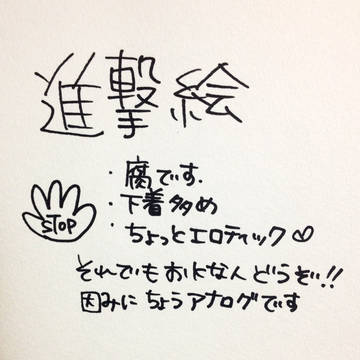 進撃絵
・腐です.
STOP
・下着多め
・ちょっとエロティック♡
それでもおkな人どうぞ!!
因みにちょうアナログです